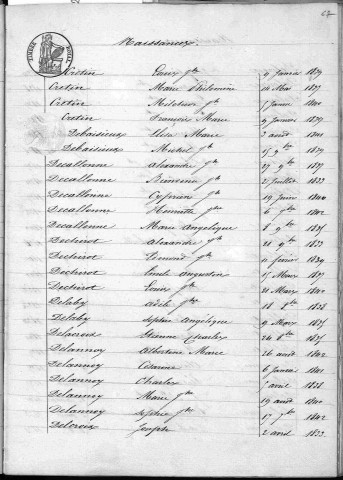 Naissances.
Cretin Louis Jh 9 Janvier 1839
Cretin Marie Philomine 14 Mai 1837
Cretin Melchior Jh 7 Janvier 1840
Cretin François Marie 9 Janvier 1839
Debaisieux Elise Marie 3 août 1841
Debaisieux Michel Jh 15 9bre 1839
Decallonne Alexandre Jh 27 9bre 1837
Decallonne Jh 2 Juillet 1833
Decallonne Cyprien Jh 19 Juin 1840
Decallonne Henriette Jh 6 1842
Decallonne Marie Angélique 8 9bre 1835
Dechirot Alexandre Jh 20 9bre 1833
Dechirot Edmond Jh 11 février 1839
Dechirot Emile Augustin 15 Mars 1837
Dechirot Louis Jh 21 Mars 1842
Delaby Adèle Jhe 18 8bre 1838
Delaby Sophie Angélique 9 Mars 1835
Delacroix Etienne Charles 26 8bre 1835
Delannoy Albertine Marie 26 août 1842
Delannoy Césarine 6 Janvier 1841
Delannoy Charles avril 1838
Delaunoy Marie Jh 19 août 1840
Delannoy Sophie Jh 17 1842
Delcroix Joseph 2 avril 1833